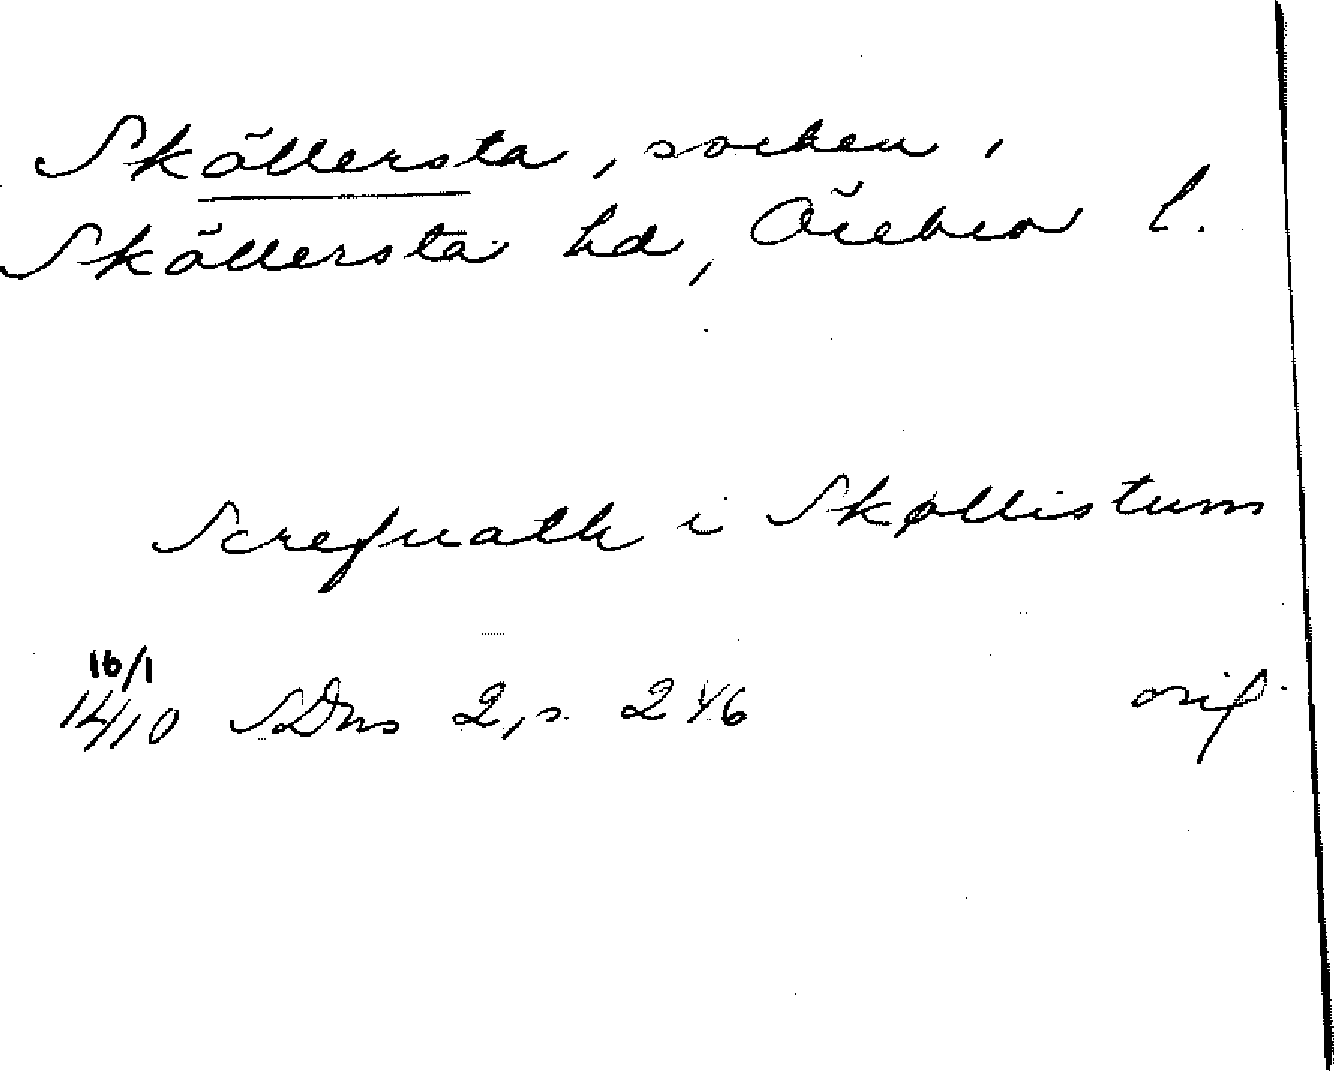 Sköllersta, socken,
Sköllersta hd, Örebro l.
Screfuath i Skøllistum
16/1
1410 SDns 2, s. 246 orig.